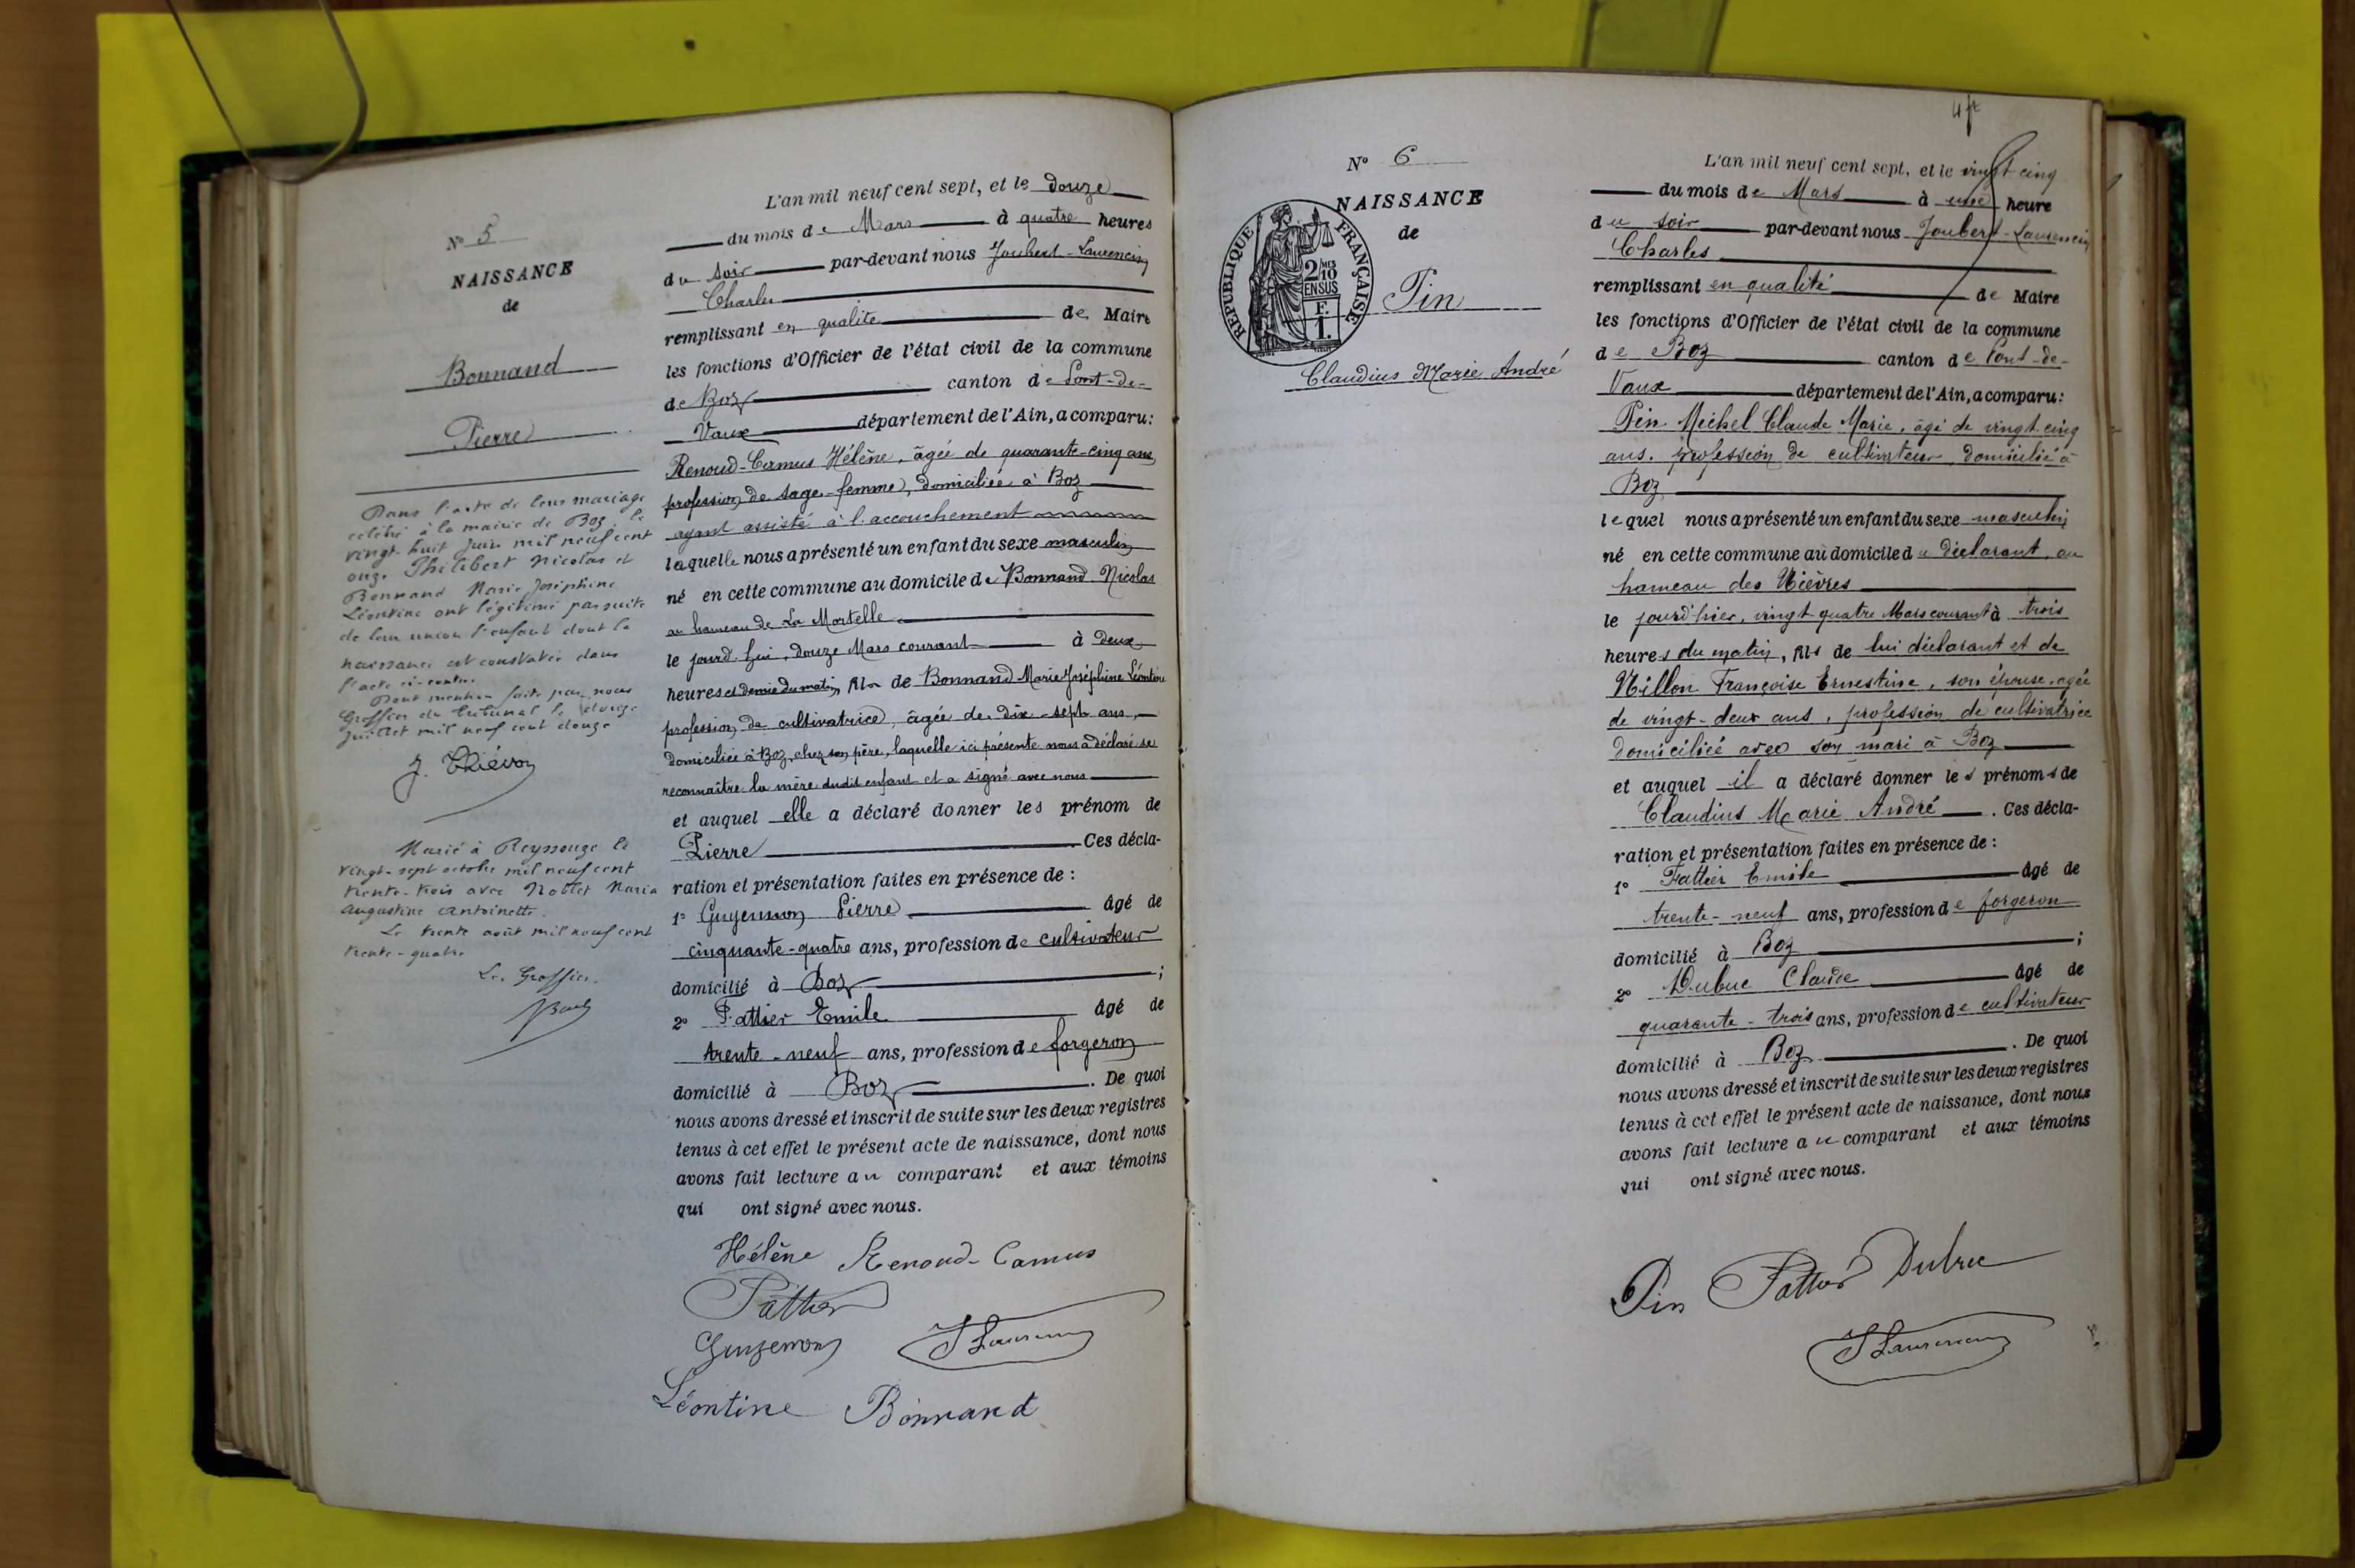 N° 5
NAISSANCE
de
Bonnand
Pierre
Dans l'acte de leur mariage
célébré à la mairie de Boz, le
vingt-huit juin mil neuf cent
onze Philibert Nicolas et
Bonnand Marie Joséphine
Léontine ont légitimé par suite
de leur union l'enfant dont la
naissance est constatée dans
l'acte ci-contre.
Dont mention faite par nous
Greffier du tribunal le douze
juillet mil neuf cent douze
J. Thiévon
Marié à Reyssouze le
vingt-sept octobre mil neuf cent
trente-trois avec Nollet Maria
Augustine Antoinette.
Le trente août mil neuf cent
trente-quatre
Le Greffier.
L'an mil neuf cent sept, et le douze
du mois de Mars à quatre heures
du soir par-devant nous Joubert-Laurencin
Charles
remplissant en qualité de Maire
les fonctions d'Officier de l'état civil de la commune
de Boz canton de Pont-de-
Vaux département de l'Ain, a comparu:
Renoud-Camus Hélène, âgée de quarante-cinq ans,
profession de sage-femme, domiciliée à Boz
ayant assisté à l'accouchement
laquelle nous a présenté un enfant du sexe masculin
né en cette commune au domicile de Bonnand Nicolas
au hameau de La Mortelle
le jourd'hui, douze Mars courant à deux
heures et demie du matin, fils de Bonnand Marie Joséphine Léontine
profession de cultivatrice, âgée de dix-sept ans,
domiciliée à Boz, chez son père, laquelle ici présente nous a déclaré se
reconnaître la mère dudit enfant et a signé avec nous
et auquel elle a déclaré donner les prénom de
Pierre Ces décla-
ration et présentation faites en présence de :
1° Guyennon Pierre âgé de
cinquante-quatre ans, profession de cultivateur
domicilié à Boz ;
2° Fattier Emile âgé de
trente-neuf ans, profession de forgeron
domicilié à Boz . De quoi
nous avons dressé et inscrit de suite sur les deux registres
tenus à cet effet le présent acte de naissance, dont nous
avons fait lecture au comparant et aux témoins
qui ont signé avec nous.
Hélène Renoud-Camus
Fattier
Guyennon J Laurencin
Léontine Bonnand
N° 6
NAISSANCE
de
Pin
Claudius Marie André
REPUBLIQUE FRANÇAISE
2/10MES
EN SUS
F.
1.
L'an mil neuf cent sept, et le vingt cinq
du mois de Mars à une heure
du soir par-devant nous Joubert-Laurencin
Charles
remplissant en qualité de Maire
les fonctions d'Officier de l'état civil de la commune
de Boz canton de Pont-de-
Vaux département de l'Ain, a comparu:
Pin Michel Claude Marie, âgé de vingt-cinq
ans. profession de cultivateur, domicilié à
Boz
lequel nous a présenté un enfant du sexe masculin
né en cette commune au domicile du déclarant, au
hameau des Nièvres
le jourd'hier, vingt quatre Mars courant à trois
heures du matin, fils de lui déclarant et de
Nillon Françoise Ernestine, son épouse, agée
de vingt-deux ans, profession de cultivatrice
domiciliée avec son mari à Boz
et auquel il a déclaré donner les prénoms de
Claudius Marie André . Ces décla-
ration et présentation faites en présence de :
1° Fattier Emile âgé de
trente-neuf ans, profession de forgeron
domicilié à Boz ;
2° Dubuc Claude âgé de
quarante-trois ans, profession de cultivateur
domicilié à Boz . De quoi
nous avons dressé et inscrit de suite sur les deux registres
tenus à cet effet le présent acte de naissance, dont nous
avons fait lecture au comparant et aux témoins
qui ont signé avec nous.
Pin Fattier Dubuc
J Laurencin